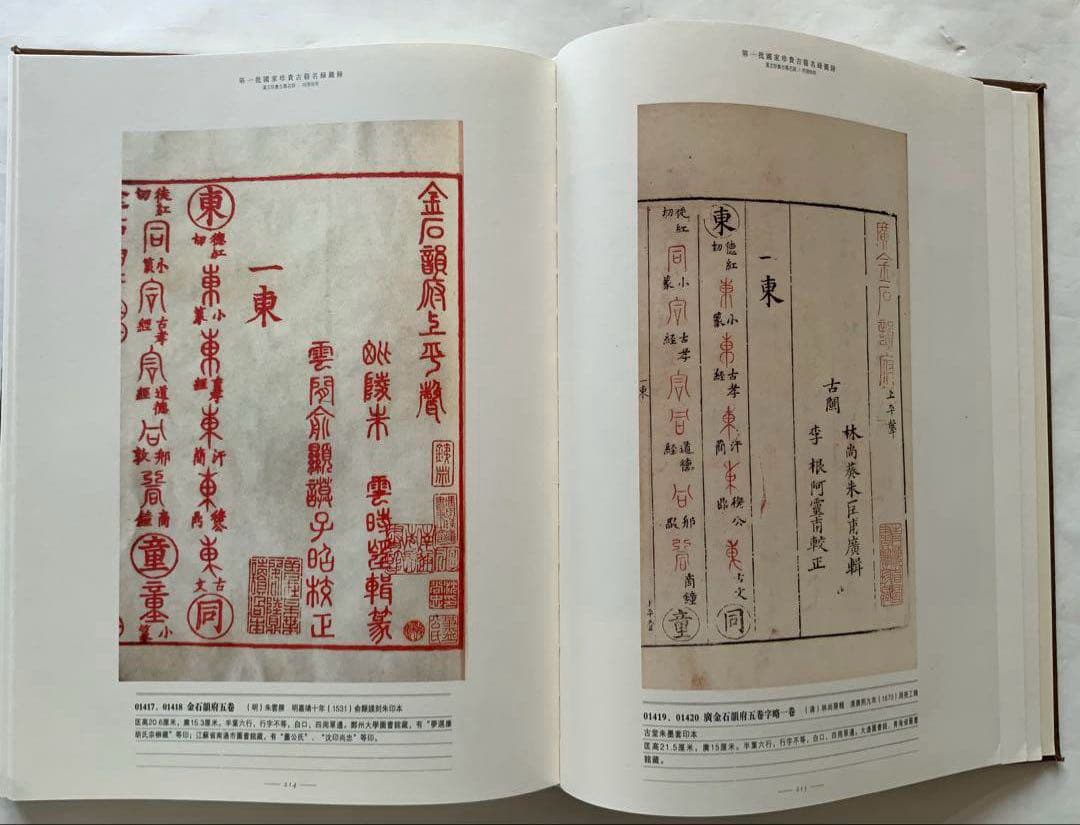 第一批國家珍貴古籍名錄圖錄
金石韻府上平聲
毗陵朱雲時望輯篆
雲間俞顯謨子昭校正
一東
東 德紅切 東 小篆 東 直孝經 東 汗簡 東 東 古文 同
徒紅切 同 小篆 古孝經 道德經 童 小篆
01417、01418 金石韻府五卷 (明)朱雲撰 明嘉靖十年(1531)俞顯謨刻朱印本
匡高20.6厘米,廣15.3厘米,半葉六行,行字不等,白口,四周單邊。鄭州大學圖書館藏,有“夢選廔
胡氏宗楙藏”等印;江蘇省南通市圖書館藏,有“董公氏”、“沈印尚忠”等印。
214
第一批國家珍貴古籍名錄圖錄
廣金石韻府 上平聲
古閩
林尚葵朱臣甫廣輯
李根阿靈甫較正
一東
東 德紅切 東 小篆 東 古孝經 東 汗簡 東 穆公鼎 東 古文 同
徒紅切 同 小篆 古孝經 道德經 尚鐘 童
一東
01419、01420 廣金石韻府五卷字略一卷 (清)林尚葵輯 清康熙九年(1670)周亮工賴
古堂朱墨套印本
匡高21.5厘米,廣15厘米。半葉六行,行字不等,白口,四周單邊。大連圖書館、青海省圖書
館藏。
215